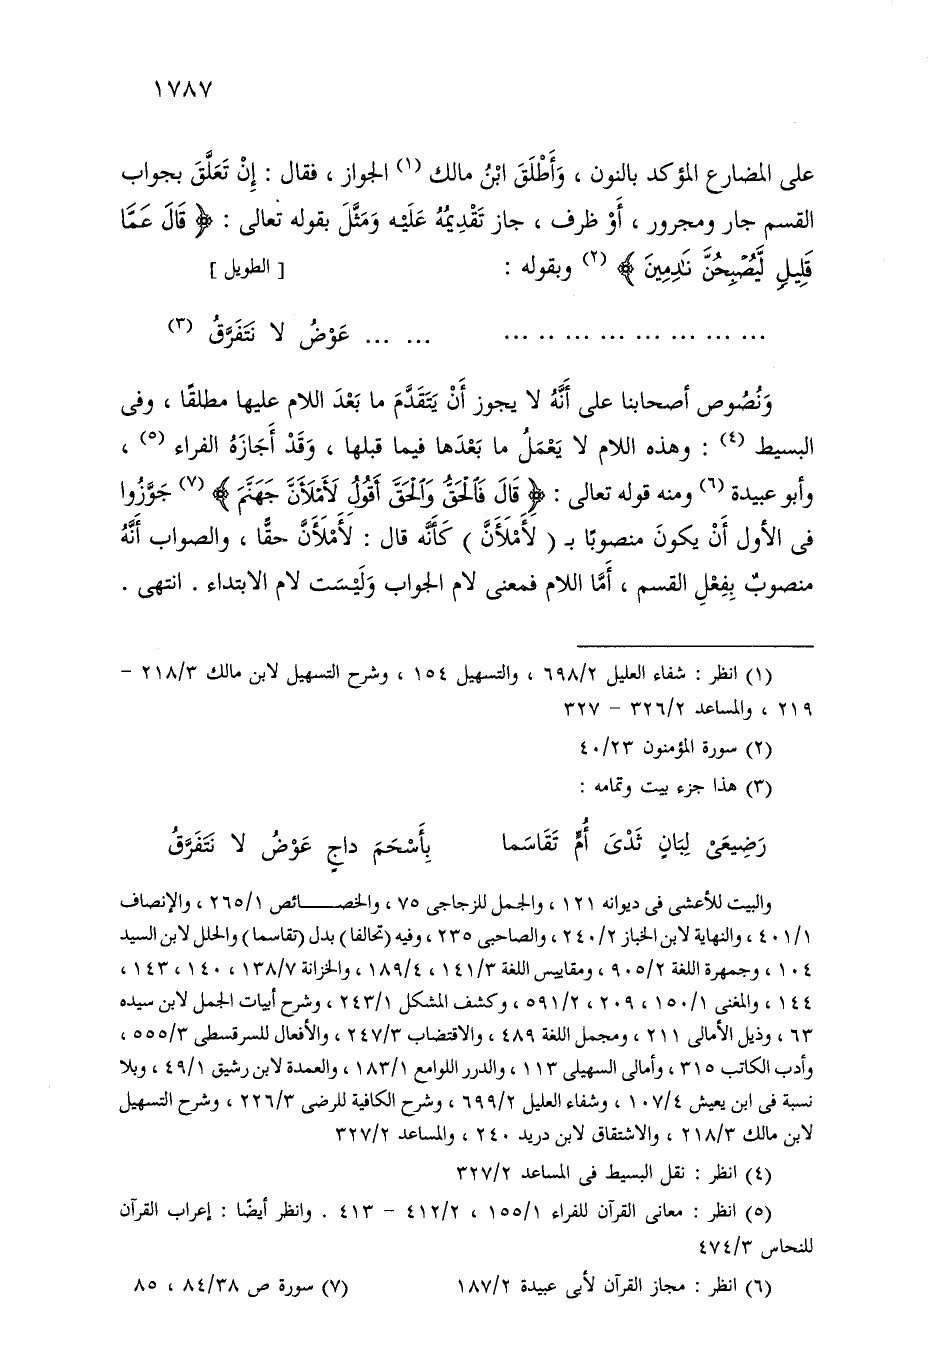 ١٧٨٧
على المضارع المؤكد بالنون ، وَأَطْلَقَ ابْنُ مالك (١) الجواز ، فقال : إِنْ تَعَلَّقَ بجواب
القسم جار ومجرور ، أَوْ ظرف ، جاز تَقْدِيمُهُ عَلَيْه وَمَثَّلَ بقوله تعالى : ﴿ قَالَ عَمَّا
قَلِيلٍ لَّيُصْبِحُنَّ نَادِمِينَ ﴾ (٢) وبقوله : [ الطويل ]
... ... ... ... ... ... .. ... ... ... عَوْضُ لا نَتَفَرَّقُ (٣)
وَنُصُوص أصحابنا على أَنَّهُ لا يجوز أَنْ يَتَقَدَّمَ ما بَعْدَ اللام عليها مطلقًا ، وفى
البسيط (٤) : وهذه اللام لا يَعْمَلُ ما بَعْدَها فيما قبلها ، وَقَدْ أَجَازَهُ الفراء (٥) ،
وأبو عبيدة (٦) ومنه قوله تعالى : ﴿ قَالَ فَالْحَقُّ وَالْحَقَّ أَقُولُ لَأَمْلَأَنَّ جَهَنَّمَ ﴾ (٧) جَوَّزُوا
فى الأول أَنْ يكونَ منصوبًا بـ ( لَأَمْلَأَنَّ ) كَأَنَّه قال : لَأَمْلَأَنَّ حقًّا ، والصواب أَنَّهُ
منصوبٌ بِفِعْلِ القسم ، أَمَّا اللام فمعنى لام الجواب وَلَيْسَت لام الابتداء . انتهى .
(١) انظر : شفاء العليل ٦٩٨/٢ ، والتسهيل ١٥٤ ، وشرح التسهيل لابن مالك ٢١٨/٣ –
٢١٩ ، والمساعد ٣٢٦/٢ – ٣٢٧
(٢) سورة المؤمنون ٤٠/٢٣
(٣) هذا جزء بيت وتمامه :
رَضِيعَىْ لِبَانٍ ثَدْىَ أُمٍّ تَقَاسَما بِأَسْحَمَ داجٍ عَوْضُ لا نَتَفَرَّقُ
والبيت للأعشى فى ديوانه ١٢١ ، والجمل للزجاجى ٧٥ ، والخصــــائص ٢٦٥/١ ، والإنصاف
٤٠١/١ ، والنهاية لابن الخباز ٢٤٠/٢ ، والصاحبى ٢٣٥ ، وفيه (تحالفا) بدل (تقاسما) والحلل لابن السيد
١٠٤ ، وجمهرة اللغة ٩٠٥/٢ ، ومقاييس اللغة ١٤١/٣ ، ١٨٩/٤ ، والخزانة ١٣٨/٧ ، ١٤٠ ، ١٤٣ ،
١٤٤ ، والمغنى ١٥٠/١ ، ٢٠٩ ، ٥٩١/٢ ، وكشف المشكل ٢٤٣/١ ، وشرح أبيات الجمل لابن سيده
٦٣ ، وذيل الأمالى ٢١١ ، ومجمل اللغة ٤٨٩ ، والاقتضاب ٢٤٧/٣ ، والأفعال للسرقسطى ٥٥٥/٣ ،
وأدب الكاتب ٣١٥ ، وأمالى السهيلى ١١٣ ، والدرر اللوامع ١٨٣/١ ، والعمدة لابن رشيق ٤٩/١ ، وبلا
نسبة فى ابن يعيش ١٠٧/٤ ، وشفاء العليل ٦٩٩/٢ ، وشرح الكافية للرضى ٢٢٦/٣ ، وشرح التسهيل
لابن مالك ٢١٨/٣ ، والاشتقاق لابن دريد ٢٤٠ ، والمساعد ٣٢٧/٢
(٤) انظر : نقل البسيط فى المساعد ٣٢٧/٢
(٥) انظر : معانى القرآن للفراء ١٥٥/١ ، ٤١٢/٢ – ٤١٣ . وانظر أيضًا : إعراب القرآن
للنحاس ٤٧٤/٣
(٦) انظر : مجاز القرآن لأبى عبيدة ١٨٧/٢ (٧) سورة ص ٨٤/٣٨ ، ٨٥